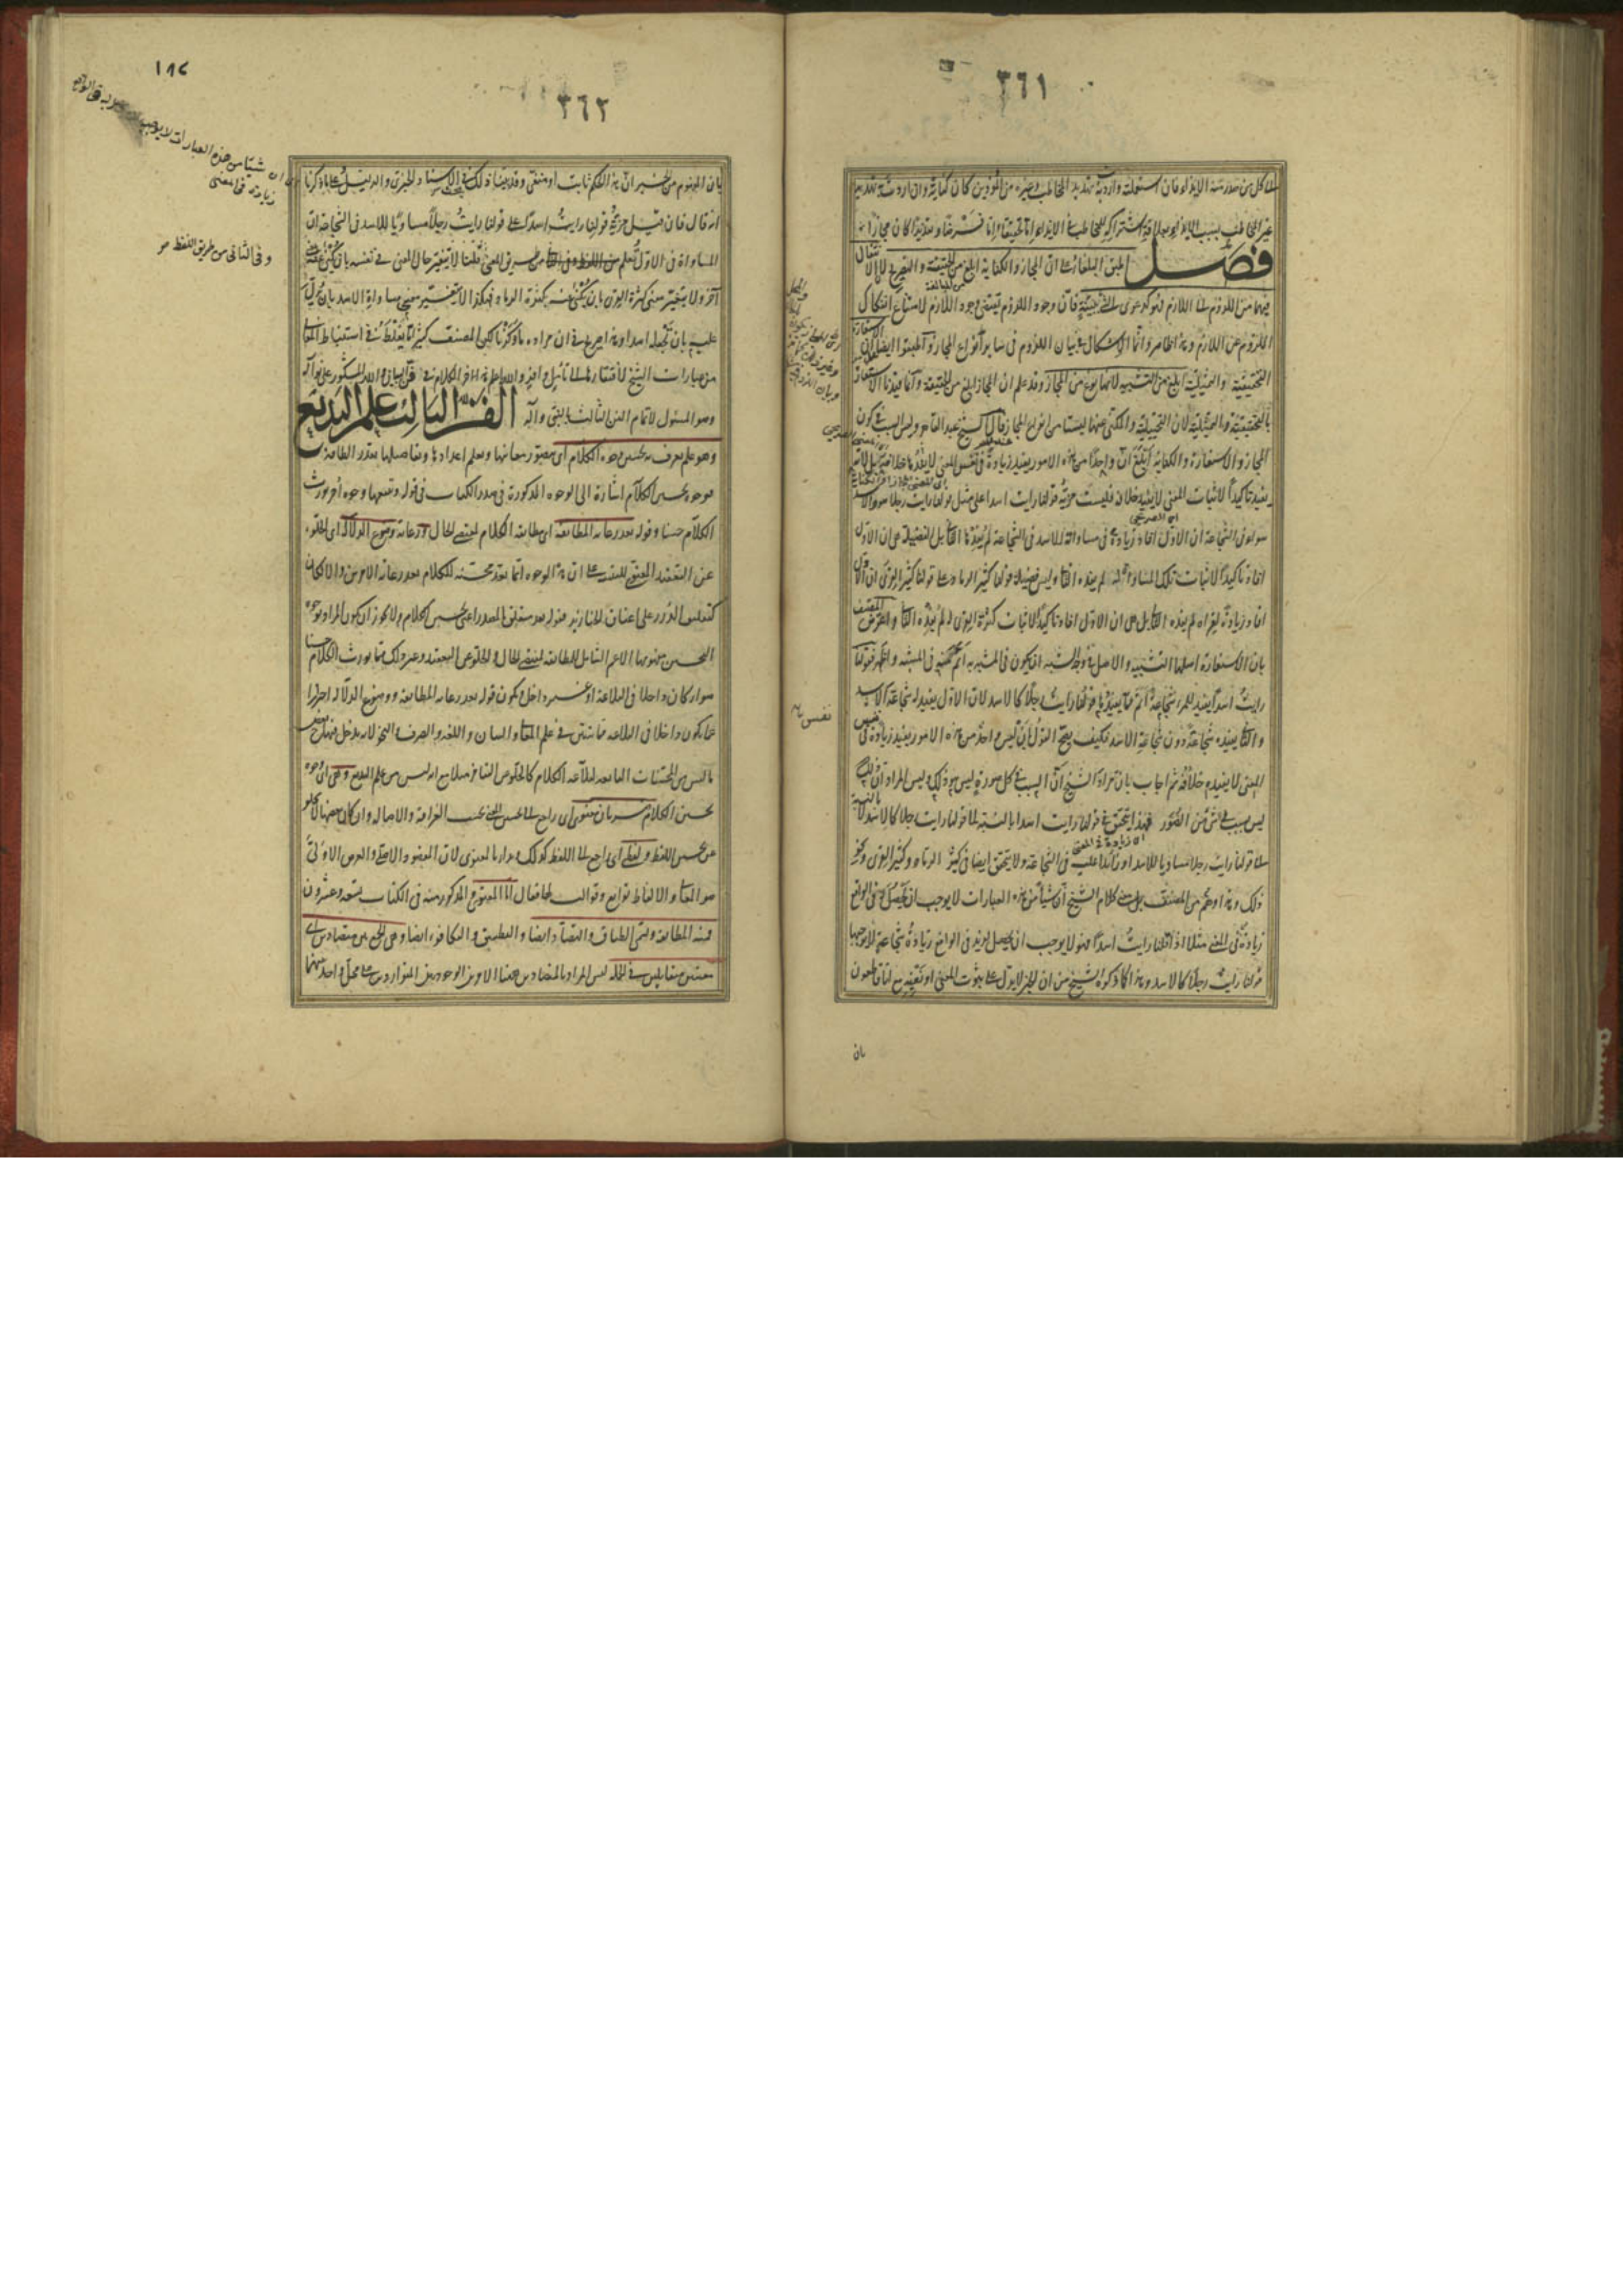 ٣٦١
كل من صدر منه الايذاء فان استعملته واردت به تهديد المخاطب وغيره من المؤذين كان كناية وان اردت به تهديد
غير المخاطب بسبب الايذاء لعلاقة اشتراكه للمخاطب في الايذاء اما تحقيقا واما فرضا وتقديرا كان مجازا
فصل اطبق البلغاء على ان المجاز والكناية ابلغ من الحقيقة والتصريح لان الانتقال
فيهما من الملزوم الى اللازم فهو كدعوى الشئ ببينة فان وجود الملزوم يقتضي وجود اللازم لامتناع انفكاك
الملزوم عن اللازم وهذا ظاهر وانما الاشكال في بيان اللزوم في ساير انواع المجاز واطبقوا ايضا على ان الاستعارة
التحقيقية والتمثيلية ابلغ من التشبيه لانها نوع من المجاز وقد علم ان المجاز ابلغ من الحقيقة وانما قيدنا الاستعارة
بالتحقيقية والتمثيلية لان التخييلية والمكنى عنها ليستا من انواع المجاز قال الشيخ عبد القاهر وليس السبب في كون
المجاز والاستعارة والكناية ابلغ ان واحدا من هذه الامور يفيد زيادة في نفس المعنى لا يفيدها خلافه بل لانه
يفيد تاكيدا لاثبات المعنى لا يفيده خلافه فليست مزية قولنا رايت اسدا على مثل قولنا رايت رجلا هو والاسد
سواء في الشجاعة ان الاول افاد زيادة في مساواته للاسد في الشجاعة لم يفدها الثاني بل الفضيلة هي ان الاول
افاد تاكيدا لاثبات تلك المساواة له لم يفده الثاني وليس فضيلة قولنا كثير الرماد على قولنا كثير القرى ان الاول
افاد زيادة لقراه لم يفدها الثاني بل هي ان الاول افاد تاكيدا لاثبات كثرة القرى له لم يفده الثاني واعترض المصنف
بان الاستعارة اصلها التشبيه والاصل في وجه الشبه ان يكون في المشبه به اتم منه في المشبه واظهر فقولنا
رايت اسدا يفيد للمرء شجاعة اتم مما يفيدها قولنا رايت رجلا كالاسد لان الاول يفيد له شجاعة الاسد
والثاني يفيده شجاعة دون شجاعة الاسد فكيف يصح القول بان ليس واحد من هذه الامور يفيد زيادة في نفس
المعنى لا يفيده خلافه ثم اجاب بان مراد الشيخ ان السبب في كل صورة ليس هو ذلك وليس المراد ان ذلك
ليس بسبب في شئ من الصور فهذا يتحقق في قولنا رايت اسدا بالنسبة الى قولنا رايت رجلا كالاسد لا بالنسبة
الى قولنا رايت رجلا مساويا للاسد او زائدا عليه في الشجاعة ولا يتحقق ايضا في كثير الرماد وكثير القرى ونحو
ذلك وهذا وهم من المصنف بل معنى كلام الشيخ ان شيئا من هذه العبارات لا يوجب ان يحصل في الواقع
زيادة في المعنى مثلا اذا قلنا رايت اسدا فهو لا يوجب ان يحصل لزيد في الواقع زيادة شجاعة لا يوجبها
قولنا رايت رجلا كالاسد وهذا كما ذكره الشيخ من ان الخبر لا يدل على ثبوت المعنى او نفيه مع انا قاطعون
بان
نفس
١٨٢
٣٦٢
ان شيئا من هذه العبارات لا يوجب
زيادة في المعنى
وفي الثاني من طريق اللفظ
بان المفهوم من الخبر ان هذا الحكم ثابت او منفي وقد بينا ذلك في الاسناد الخبري والدليل على ما ذكرنا
انه قال فان قيل مزية قولنا رايت اسدا على قولنا رايت رجلا مساويا للاسد في الشجاعة ان
المساواة في الاول تعلم من طريق المعنى قلنا لا يتغير حال المعنى في نفسه بان يكنى عنه بمعنى
آخر ولا يتغير معنى كثرة القرى بان يكنى عنه بكثرة الرماد فكذا لا يتغير معنى مساواة الاسد بان يدل
عليه بان تجعله اسدا وهذا صريح في ان مراده ما ذكرنا لكن المصنف كثيرا ما يغلط في استنباط المعاني
من عبارات الشيخ لافتقارها الى تامل وافر والله اعلم هذا آخر الكلام في فن البيان والله المشكور على نواله
وهو المسئول لاتمام الفن الثالث بالنبي وآله الفن الثالث علم البديع
وهو علم يعرف به تحسين وجوه الكلام اي يتصور معانيها ويعلم اعدادها وتفاصيلها بقدر الطاقة
فوجوه تحسين الكلام اشارة الى الوجوه المذكورة في صدر الكتاب في قوله وتتبعها وجوه أخر تورث
الكلام حسنا وقوله بعد رعاية المطابقة اي مطابقة الكلام لمقتضى الحال ورعاية وضوح الدلالة اي الخلو
عن التعقيد المعنوي للتنبيه على ان هذه الوجوه انما تعد محسنة للكلام بعد رعاية الامرين والا لكان
كتعليق الدرر على اعناق الخنازير فقوله بعد متعلق بالمصدر اعني تحسين الكلام ولا يجوز ان يكون المراد بوجوه
التحسين مفهومها الاعم الشامل للمطابقة لمقتضى الحال والخلو عن التعقيد وغير ذلك مما يورث الكلام حسنا
سواء كان داخلا في البلاغة او غير داخل ويكون قوله بعد رعاية المطابقة ووضوح الدلالة احترازا
عما يكون داخلا في البلاغة مما يتبين في علم المعاني والبيان واللغة والصرف والنحو لانه يدخل فيها حينئذ بعض
ما ليس من المحسنات التابعة لبلاغة الكلام كالخلو عن التنافر مثلا مع انه ليس من علم البديع وهي اي وجوه
تحسين الكلام ضربان معنوي اي راجع الى تحسين المعنى بحسب العراقة والاصالة وان كان بعضها لا يخلو
عن تحسين اللفظ ولفظي اي راجع الى اللفظ كذلك وبدأ بالمعنوي لان المقصود الاصلي والغرض الاولي
هو المعاني والالفاظ توابع وقوالب لها فقال اما المعنوي المذكور منه في الكتاب تسعة وعشرون
فمنه المطابقة وتسمى الطباق والتضاد ايضا والتطبيق والتكافؤ ايضا وهي الجمع بين متضادين اي
معنيين متقابلين في الجملة ليس المراد بالمتضادين ههنا الامرين الوجوديين المتواردين على محل واحد بينهما